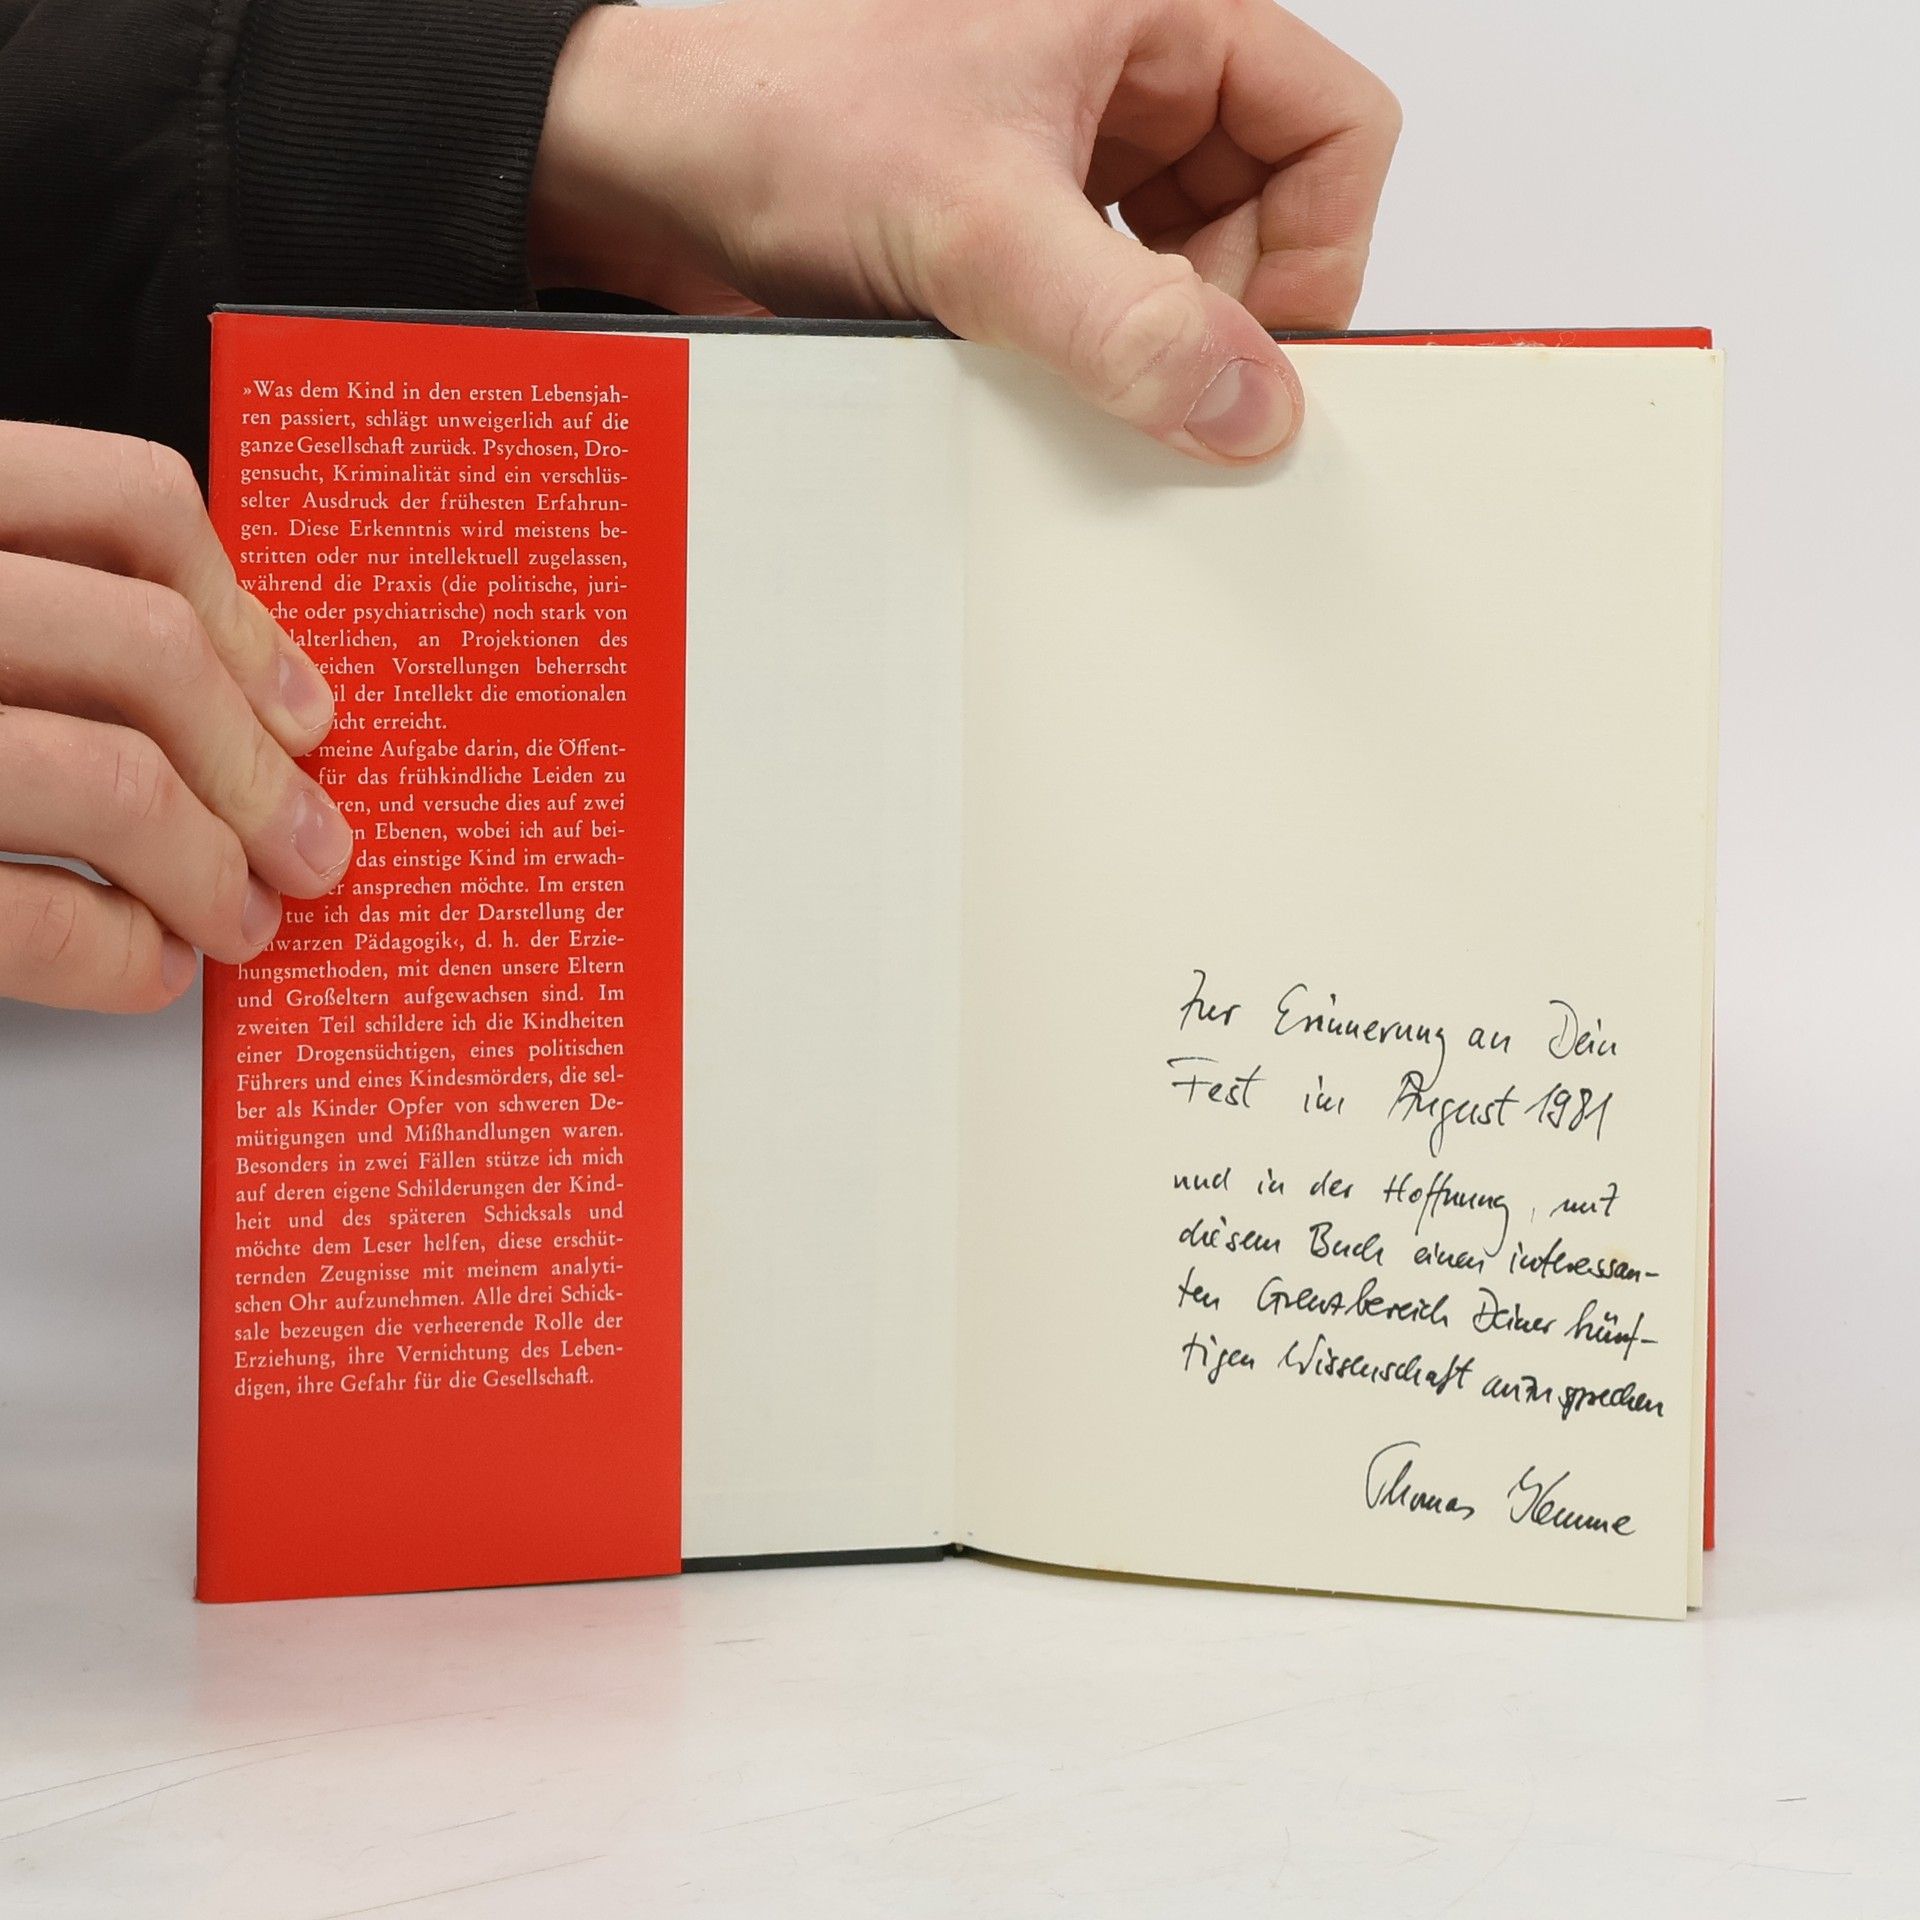 »Was dem Kind in den ersten Lebensjah-
ren passiert, schlägt unweigerlich auf die
ganze Gesellschaft zurück. Psychosen, Dro-
gensucht, Kriminalität sind ein verschlüs-
selter Ausdruck der frühesten Erfahrun-
gen. Diese Erkenntnis wird meistens be-
stritten oder nur intellektuell zugelassen,
während die Praxis (die politische, juri-
che oder psychiatrische) noch stark von
lalterlichen, an Projektionen des
reichen Vorstellungen beherrscht
il der Intellekt die emotionalen
icht erreicht.
meine Aufgabe darin, die Öffent-
für das frühkindliche Leiden zu
ren, und versuche dies auf zwei
n Ebenen, wobei ich auf bei-
das einstige Kind im erwach-
er ansprechen möchte. Im ersten
tue ich das mit der Darstellung der
hwarzen Pädagogik‹, d. h. der Erzie-
hungsmethoden, mit denen unsere Eltern
und Großeltern aufgewachsen sind. Im
zweiten Teil schildere ich die Kindheiten
einer Drogensüchtigen, eines politischen
Führers und eines Kindesmörders, die sel-
ber als Kinder Opfer von schweren De-
mütigungen und Mißhandlungen waren.
Besonders in zwei Fällen stütze ich mich
auf deren eigene Schilderungen der Kind-
heit und des späteren Schicksals und
möchte dem Leser helfen, diese erschüt-
ternden Zeugnisse mit meinem analyti-
schen Ohr aufzunehmen. Alle drei Schick-
sale bezeugen die verheerende Rolle der
Erziehung, ihre Vernichtung des Leben-
digen, ihre Gefahr für die Gesellschaft.
Zur Erinnerung an Dein
Fest im August 1981
und in der Hoffnung, mit
diesem Buch einen interessan-
ten Grenzbereich Deiner künf-
tigen Wissenschaft anzusprechen
Thomas Klemme